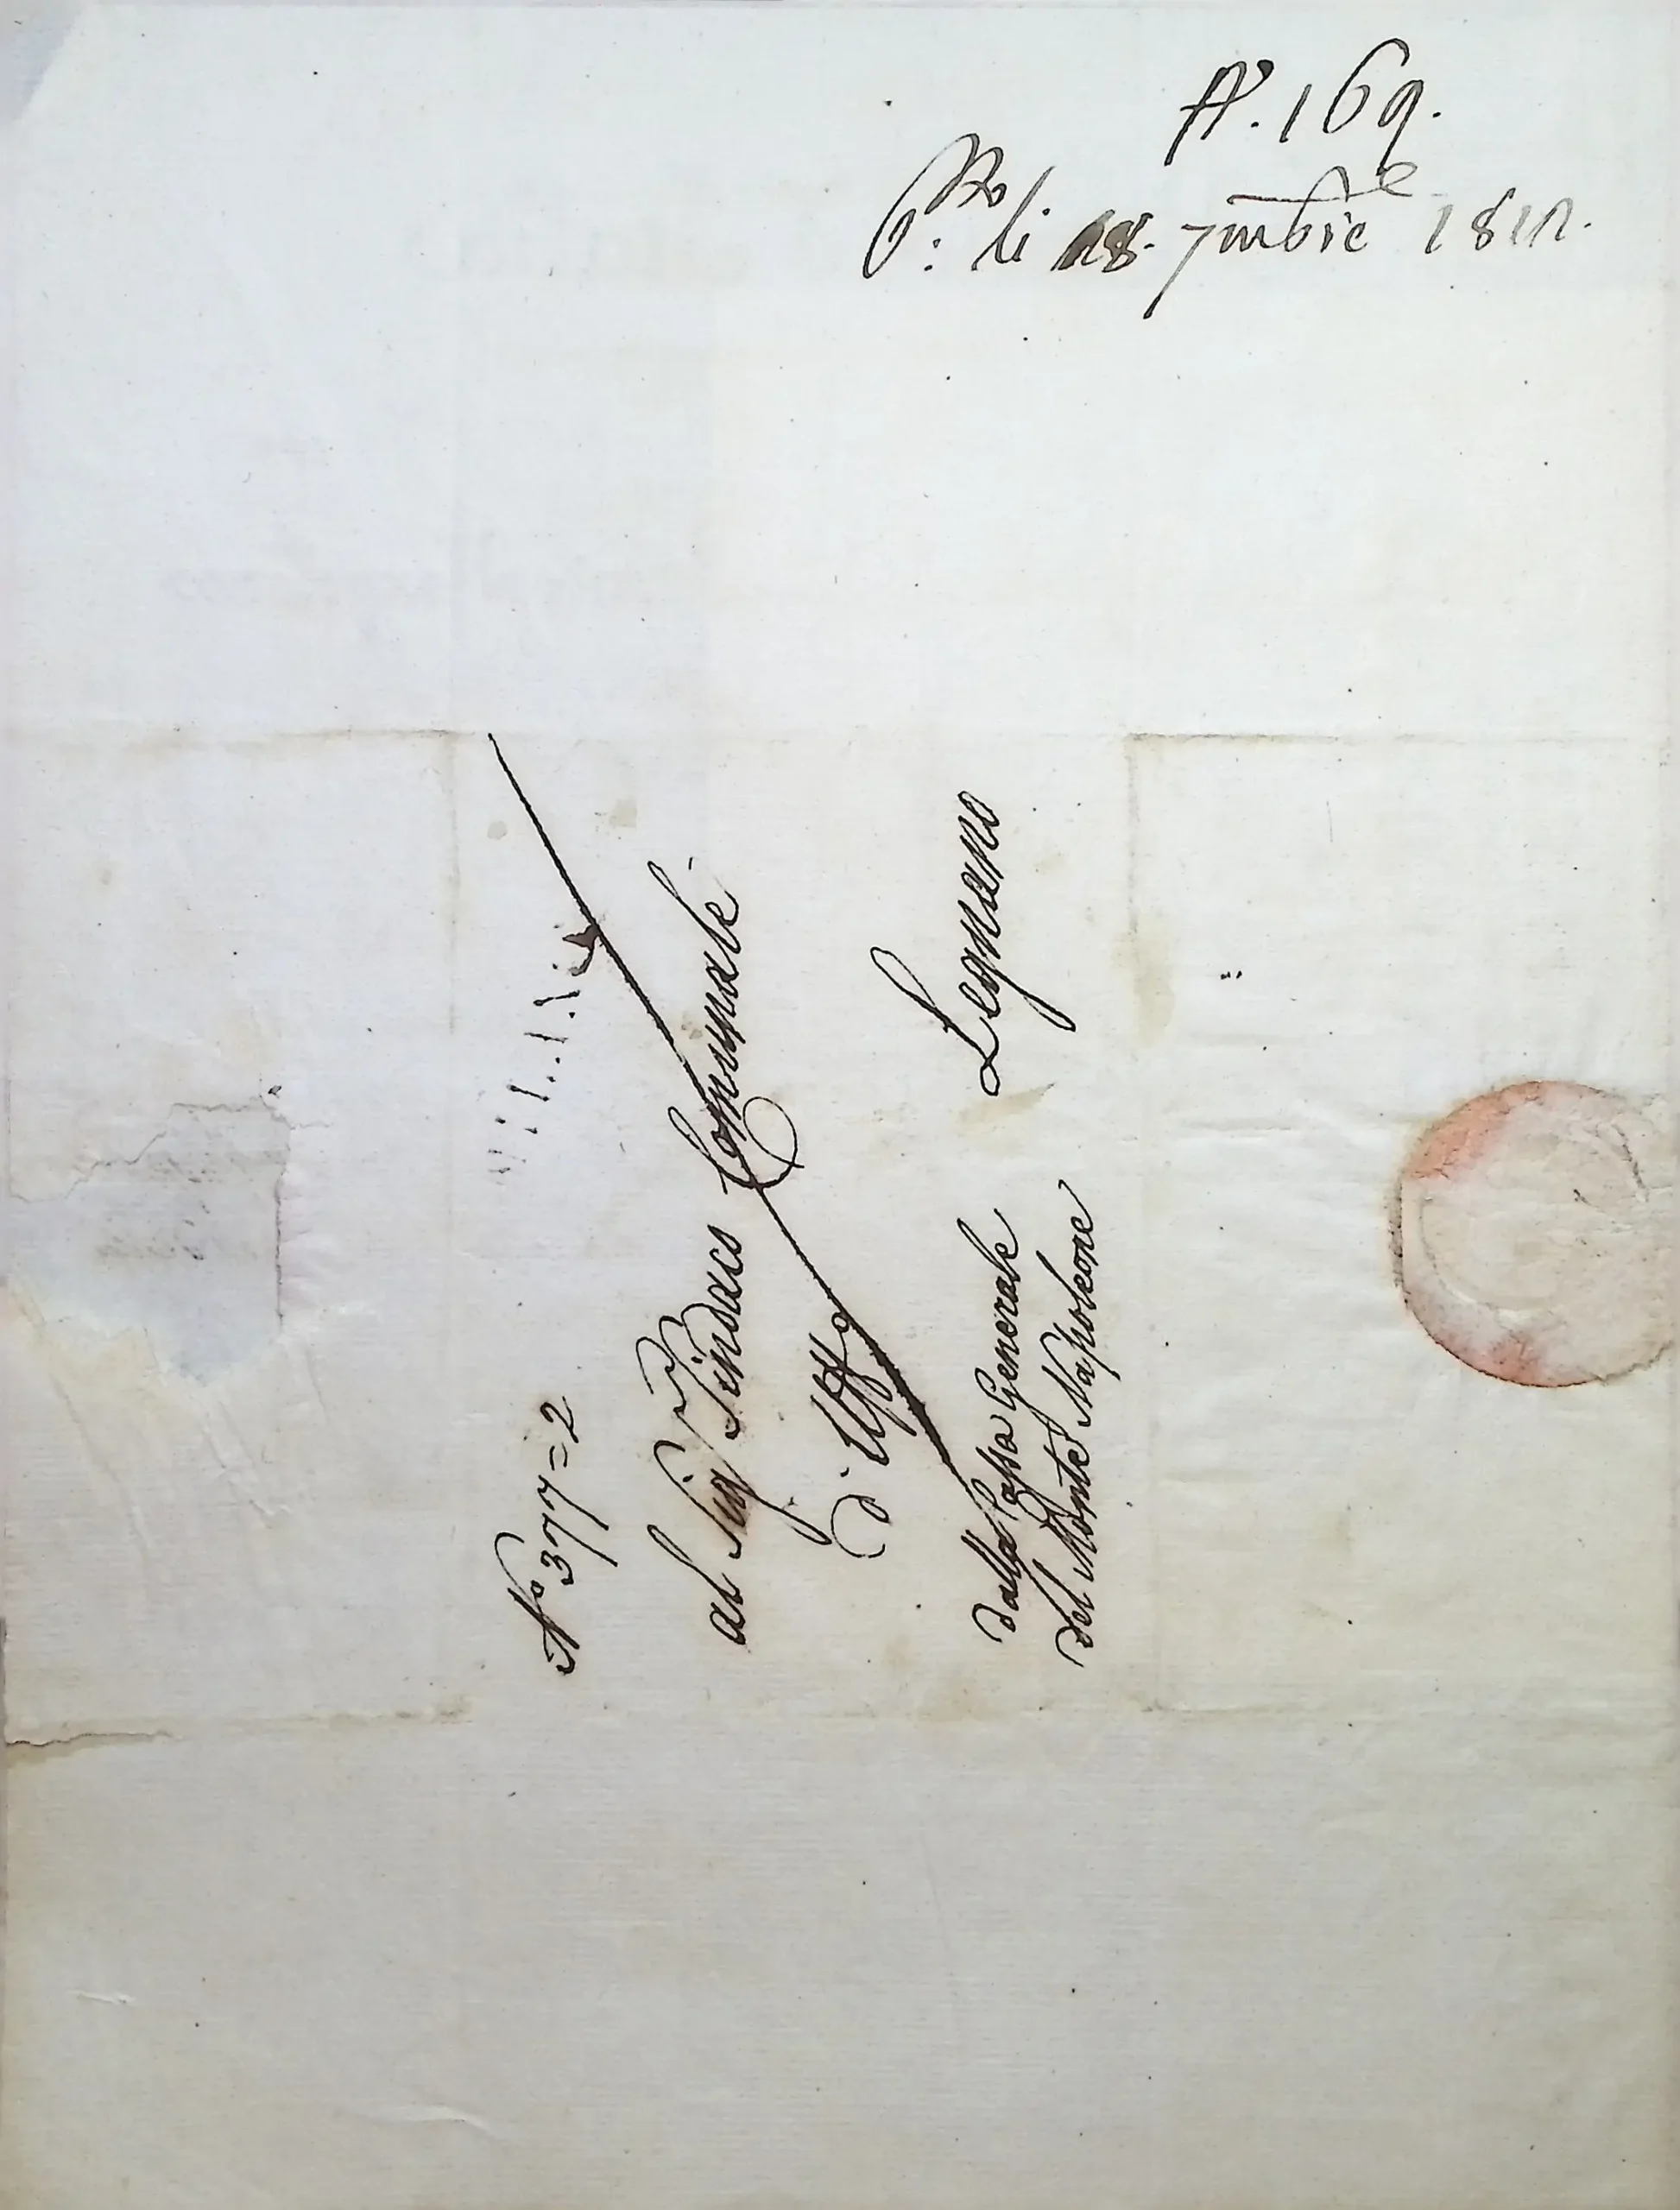 N°. 169.
P.to li 18. 7mbre 1812.
N° 377=2
al Sig.r Sindaco Comunale
d'Uff.o
Legnano
Dalla Cassa Generale
del Monte Napoleone